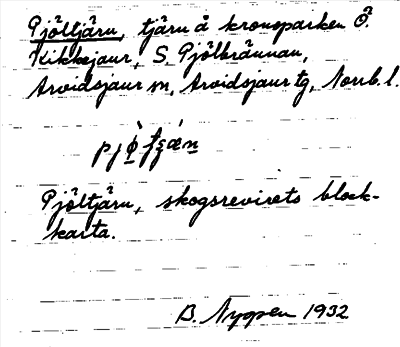 Pjöltjärn, tjärn å kronoparken Ö.
Kikkejaur, S. Pjölbrännan,
Arvidsjaur sn, Arvidsjaur tg, Norrb. l.
Pjöltjärn, skogsrevirets block-
karta.
B. Nygren 1932